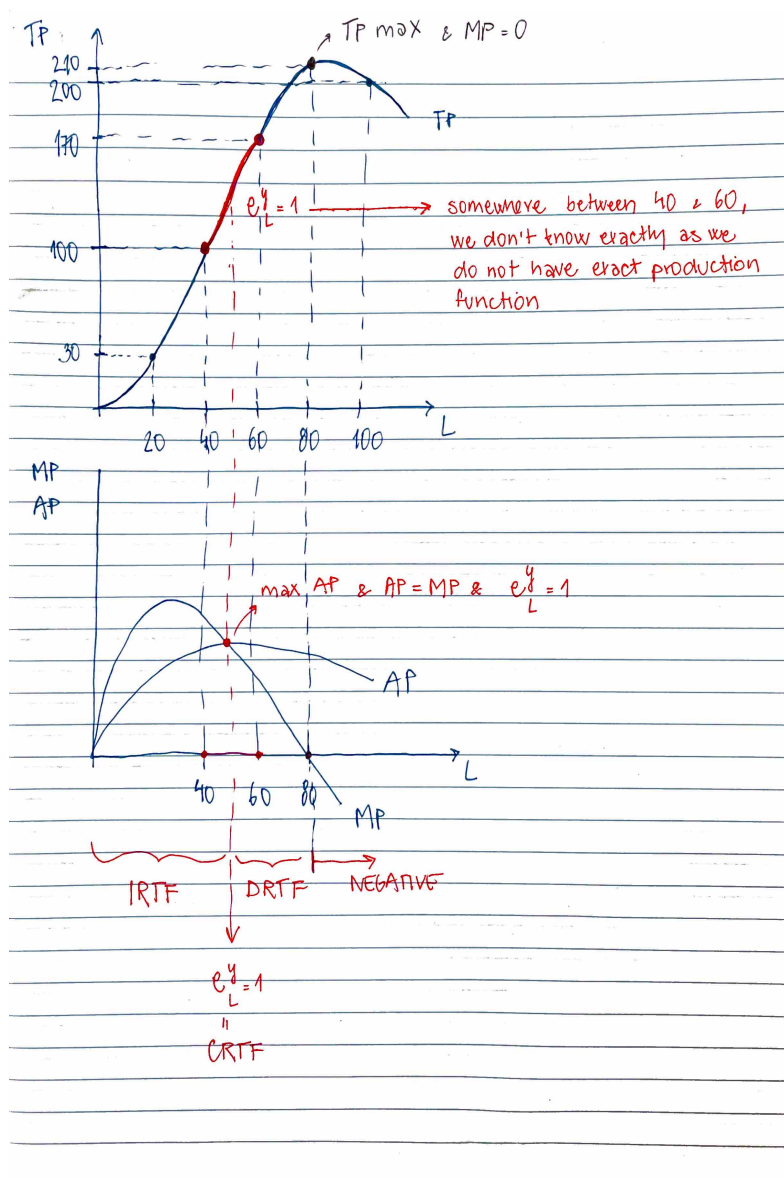 TP
TP max & MP = 0
210
200
TP
170
e^y_L = 1
somewhere between 40 & 60,
we don't know exactly as we
do not have exact production
function
100
30
20 40 60 80 100 L
MP
AP
max AP & AP = MP & e^y_L = 1
AP
L
40 60 80
MP
IRTF DRTF NEGATIVE
e^y_L = 1
"
CRTF